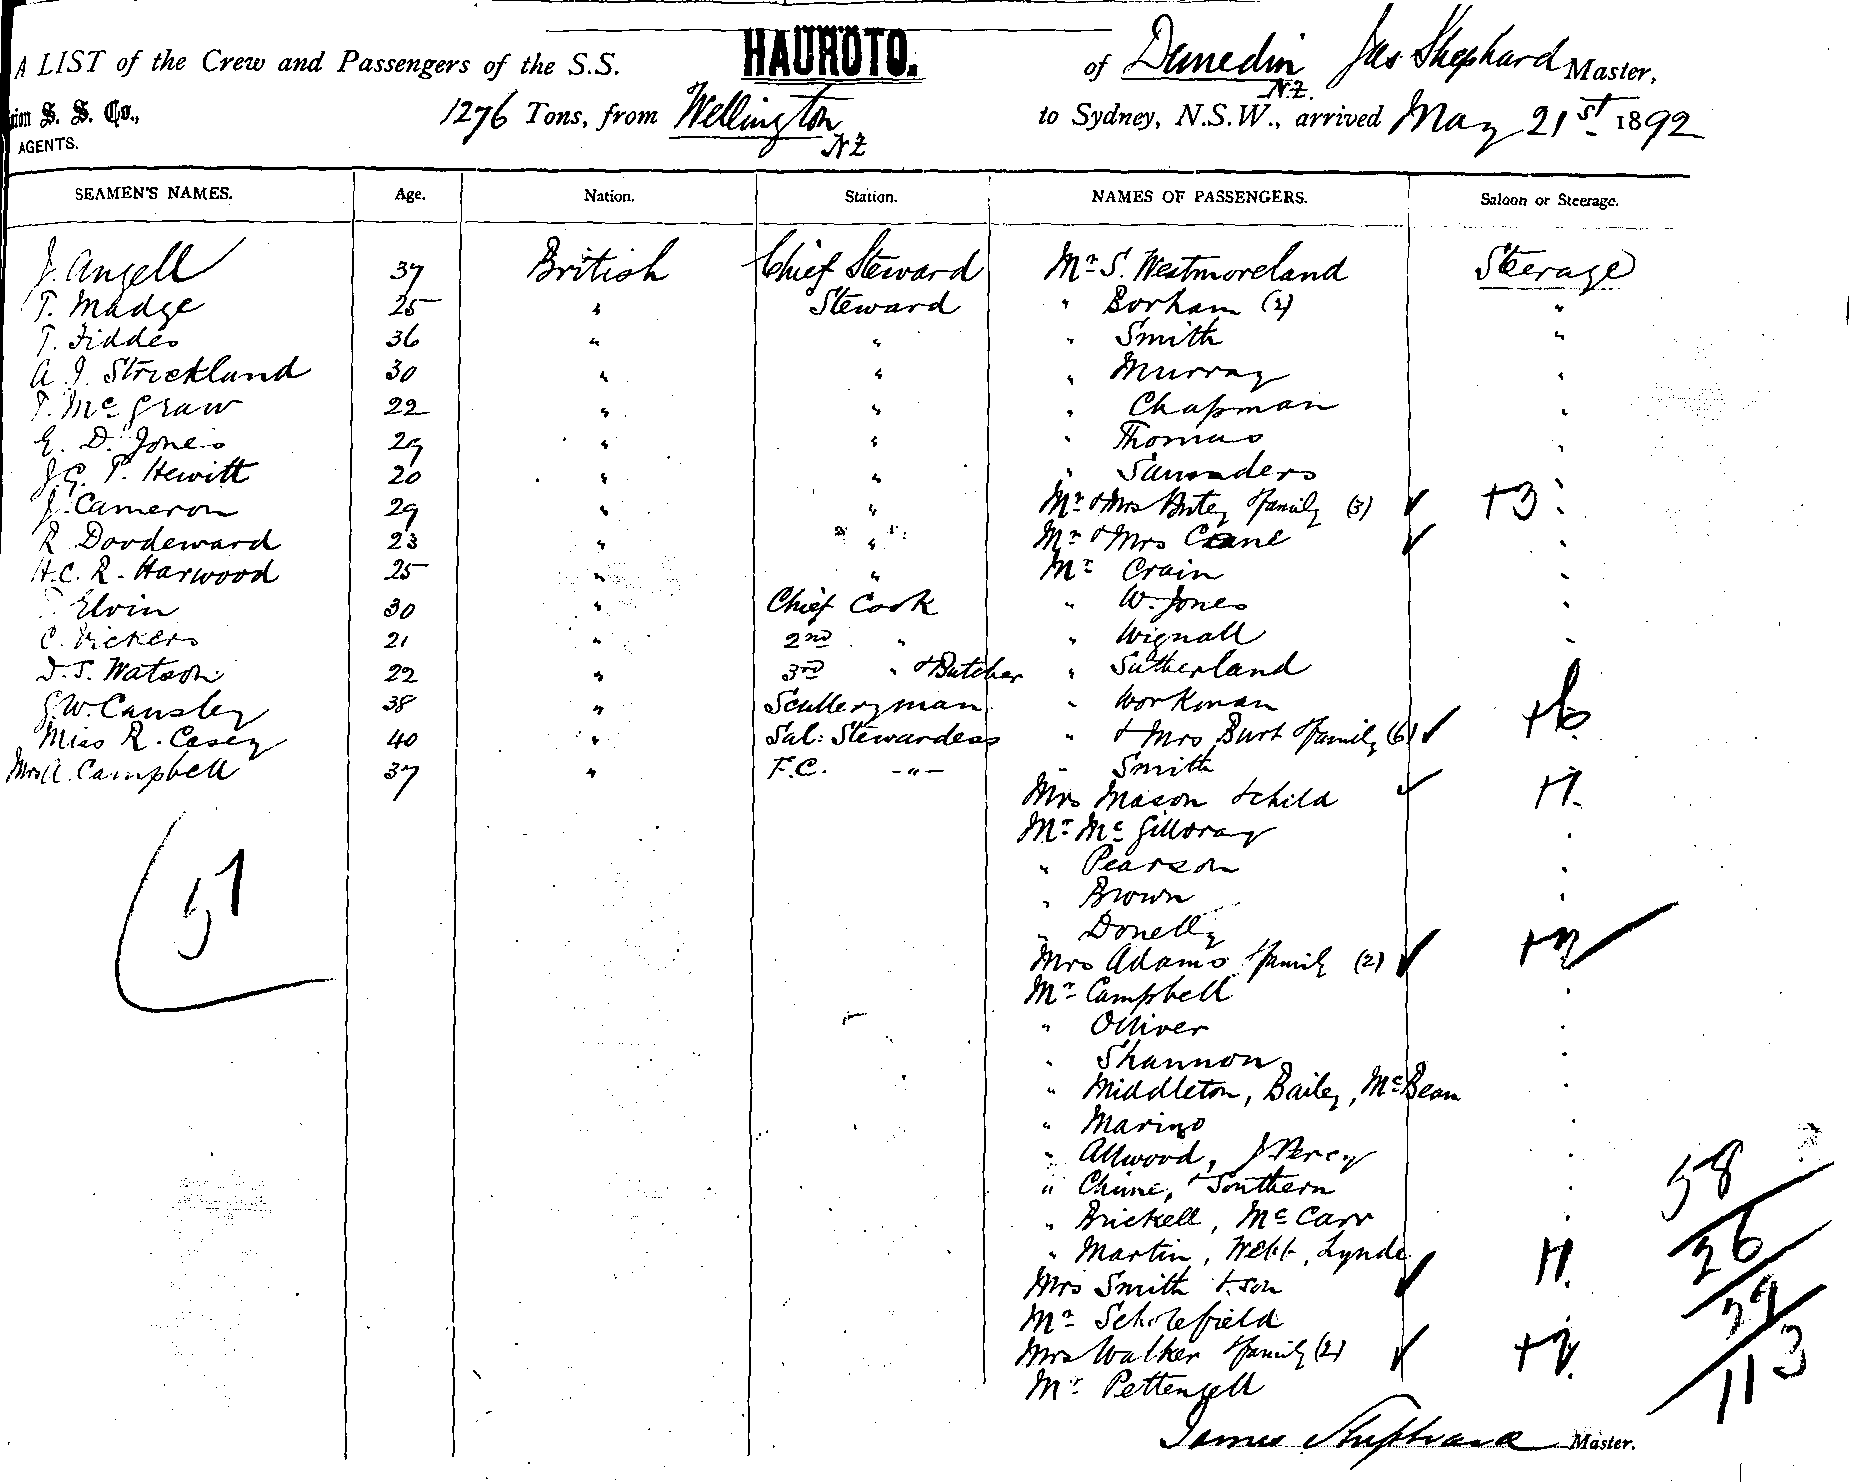 A LIST of the Crew and Passengers of the S.S. HAUROTO. of Dunedin N.Z. Jas Shephard Master,
S. S. Co., 1276 Tons, from Wellington NZ to Sydney, N.S.W., arrived May 21st 1892
AGENTS.
SEAMEN'S NAMES. Age. Nation. Station. NAMES OF PASSENGERS. Saloon or Steerage.
J. Angell 37 British Chief Steward Mr S. Westmoreland Steerage
T. Madge 25 " Steward " Borham (2) "
T. Fiddes 36 " " " Smith "
A. J. Strickland 30 " " " Murray "
T. McGraw 22 " " " Chapman "
E. D. Jones 29 " " " Thomas "
J. G. P. Hewitt 20 " " " Saunders "
J. Cameron 29 " " Mr & Mrs family (3) ✓ +3 "
R Doodeward 23 " " Mr & Mrs Crane ✓ "
H. C. R. Harwood 25 " " Mr Crain "
Elvin 30 " Chief Cook " W. Jones "
C. Vickers 21 " 2nd " " Wignall "
D. S. Watson 22 " 3rd " & Butcher " Sutherland
G. W. Cansley 38 " Sculleryman " Workman
Miss R. Casey 40 " Sal: Stewardess " & Mrs Burt & family (6) ✓ +6
Mrs A. Campbell 37 " F.C. -"- " Smith
Mrs Mason & child ✓ +1.
Mr McGilvray "
" Pearson "
" Brown "
" Donelly
Mrs Adams & family (2) ✓ +2
51
Mr Campbell "
" Olliver "
" Shannon "
" Middleton, Bailey, McBean "
" Marino "
" Allwood, J Percy "
" Chime, & Southern "
" Brickell, McCarr "
" Martin, Webb, Lynde
Mrs Smith & son ✓ +1.
Mr Scholefield
Mrs Walker & family (2) ✓ +2.
Mr Pettengell
58
26
29
113
James Shephard Master.